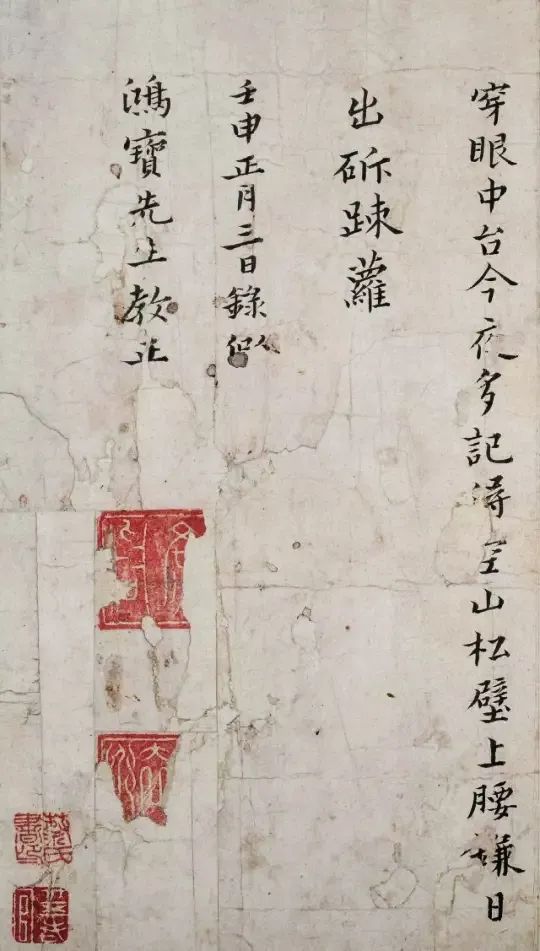 穿眼中台今夜多記得空山松壁上腰鐮日
出斫踈蘿
壬申正月三日錄似
鴻寶先生教正